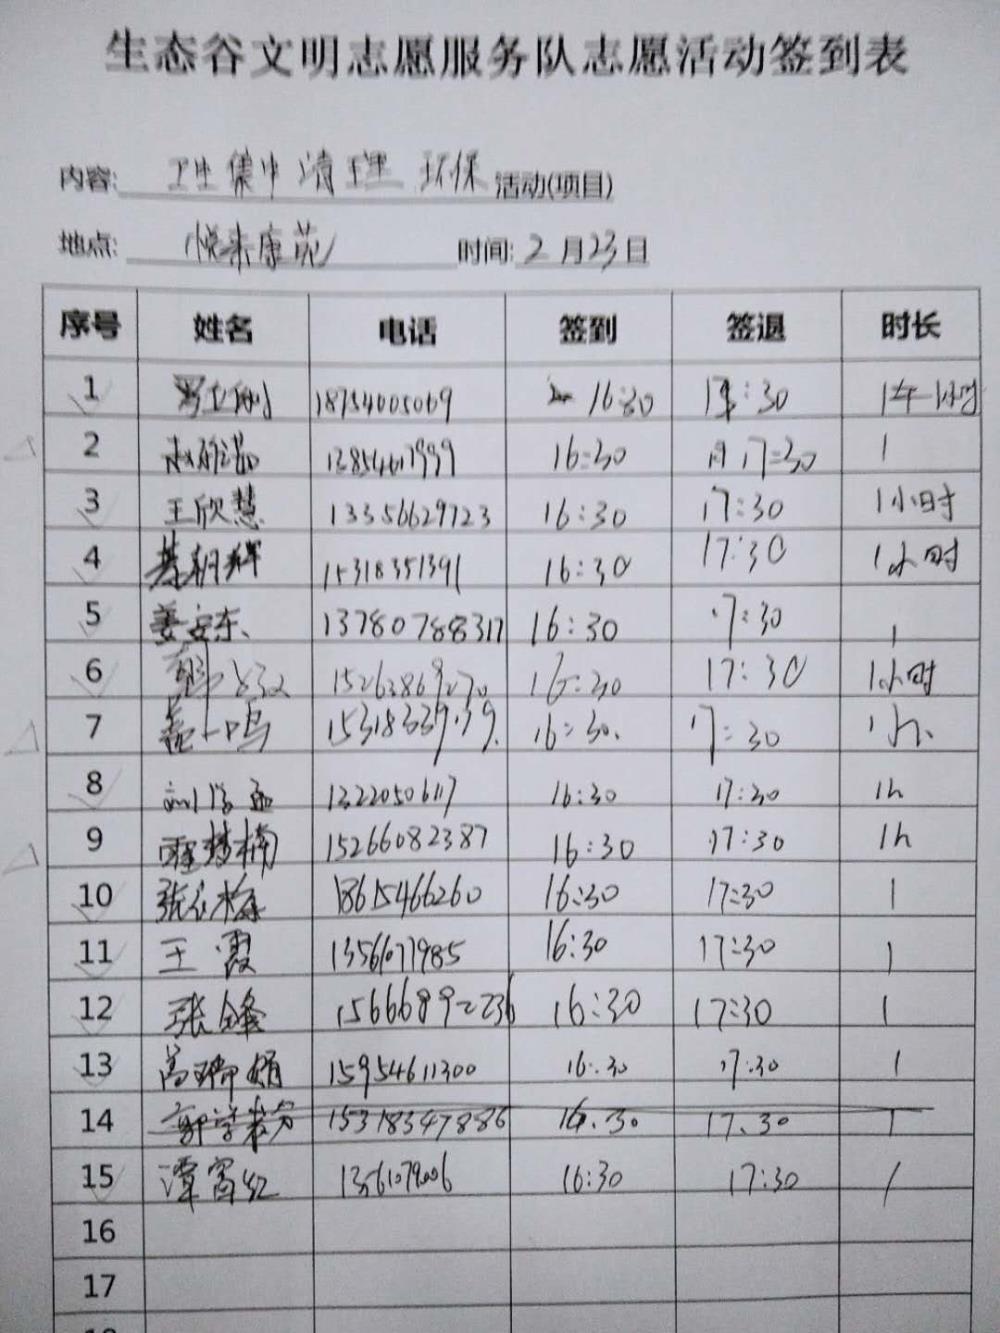 生态谷文明志愿服务队志愿活动签到表
内容: 卫生集中清理 环保 活动(项目)
地点: 悦来康苑 时间: 2月23日
序号 姓名 电话 签到 签退 时长
1 18754005069 16:30 17:30 1小时
2 16:30 17:30 1
3 王欣慧 13356629723 16:30 17:30 1小时
4 15318351391 16:30 17:30 1小时
5 姜安东 13780788317 16:30 17:30 1
6 16:30 17:30 1小时
7 16:30 17:30 1h
8 13220506117 16:30 17:30 1h
9 程梦楠 15266082387 16:30 17:30 1h
10 18615466260 16:30 17:30 1
11 王霞 13561077985 16:30 17:30 1
12 张锋 15666892236 16:30 17:30 1
13 高瑞娟 15954611300 16:30 17:30 1
14 15318347886 16.30 17.30 1
15 谭富红 13561079006 16:30 17:30 1
16
17